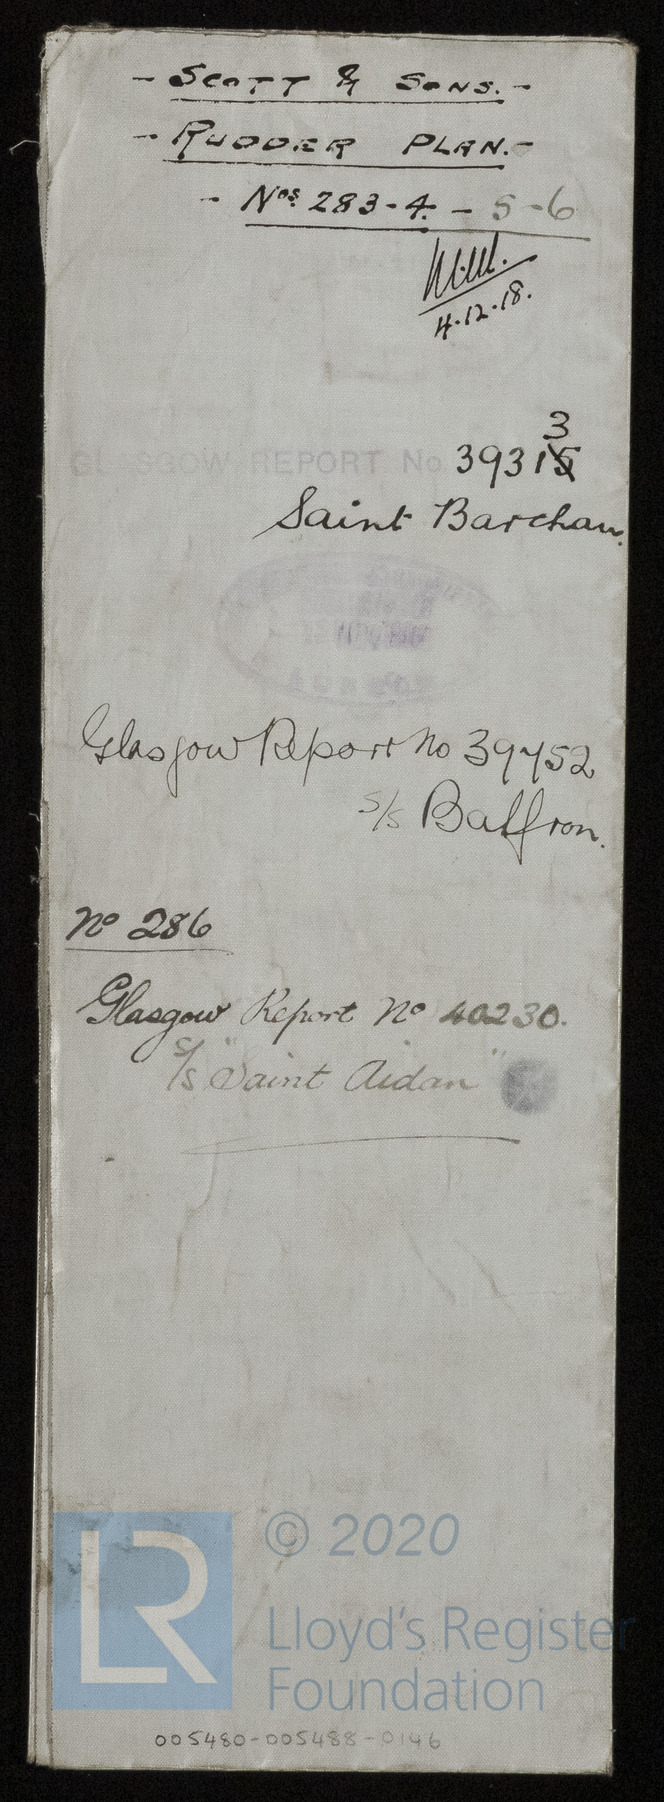 - SCOTT & SONS. -
- RUDDER PLAN. -
- Nos. 283-4. - 5-6
4.12.18.
3
GLASGOW REPORT No. 39315
Saint Barchan.
Glasgow Report No 39452
s/s Balfron.
No 286
Glasgow Report No 40230.
s/s "Saint Aidan"
LR
© 2020
Lloyd's Register
Foundation
005480-005488-0146